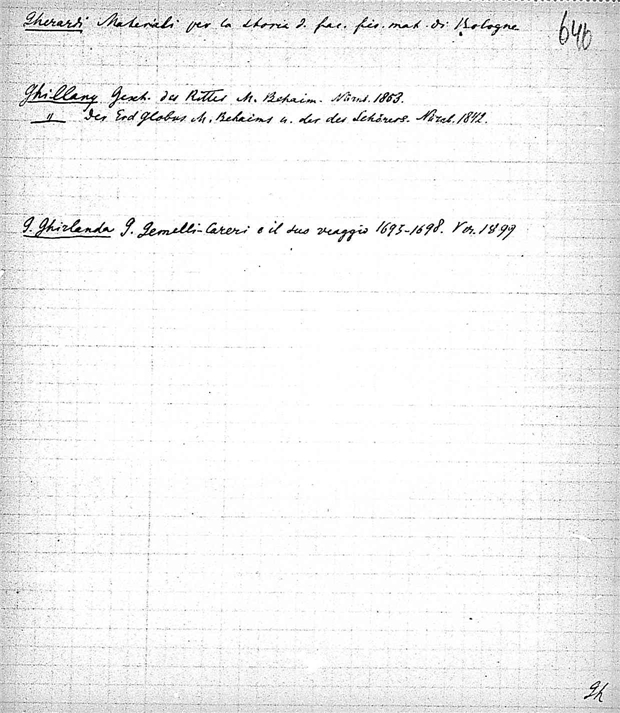 Gherardi Materiali per la storia d. fac. fis. mat. di Bologna
646
Ghillany Gesch. des Ritter M. Behaim. Nürnb. 1853.
" Der Erdglobus M. Behaims u. der des Schöners. Nürnb. 1842.
G. Ghirlanda G. Gemelli-Careri e il suo viaggio 1693-1698. Ver. 1899
Gh